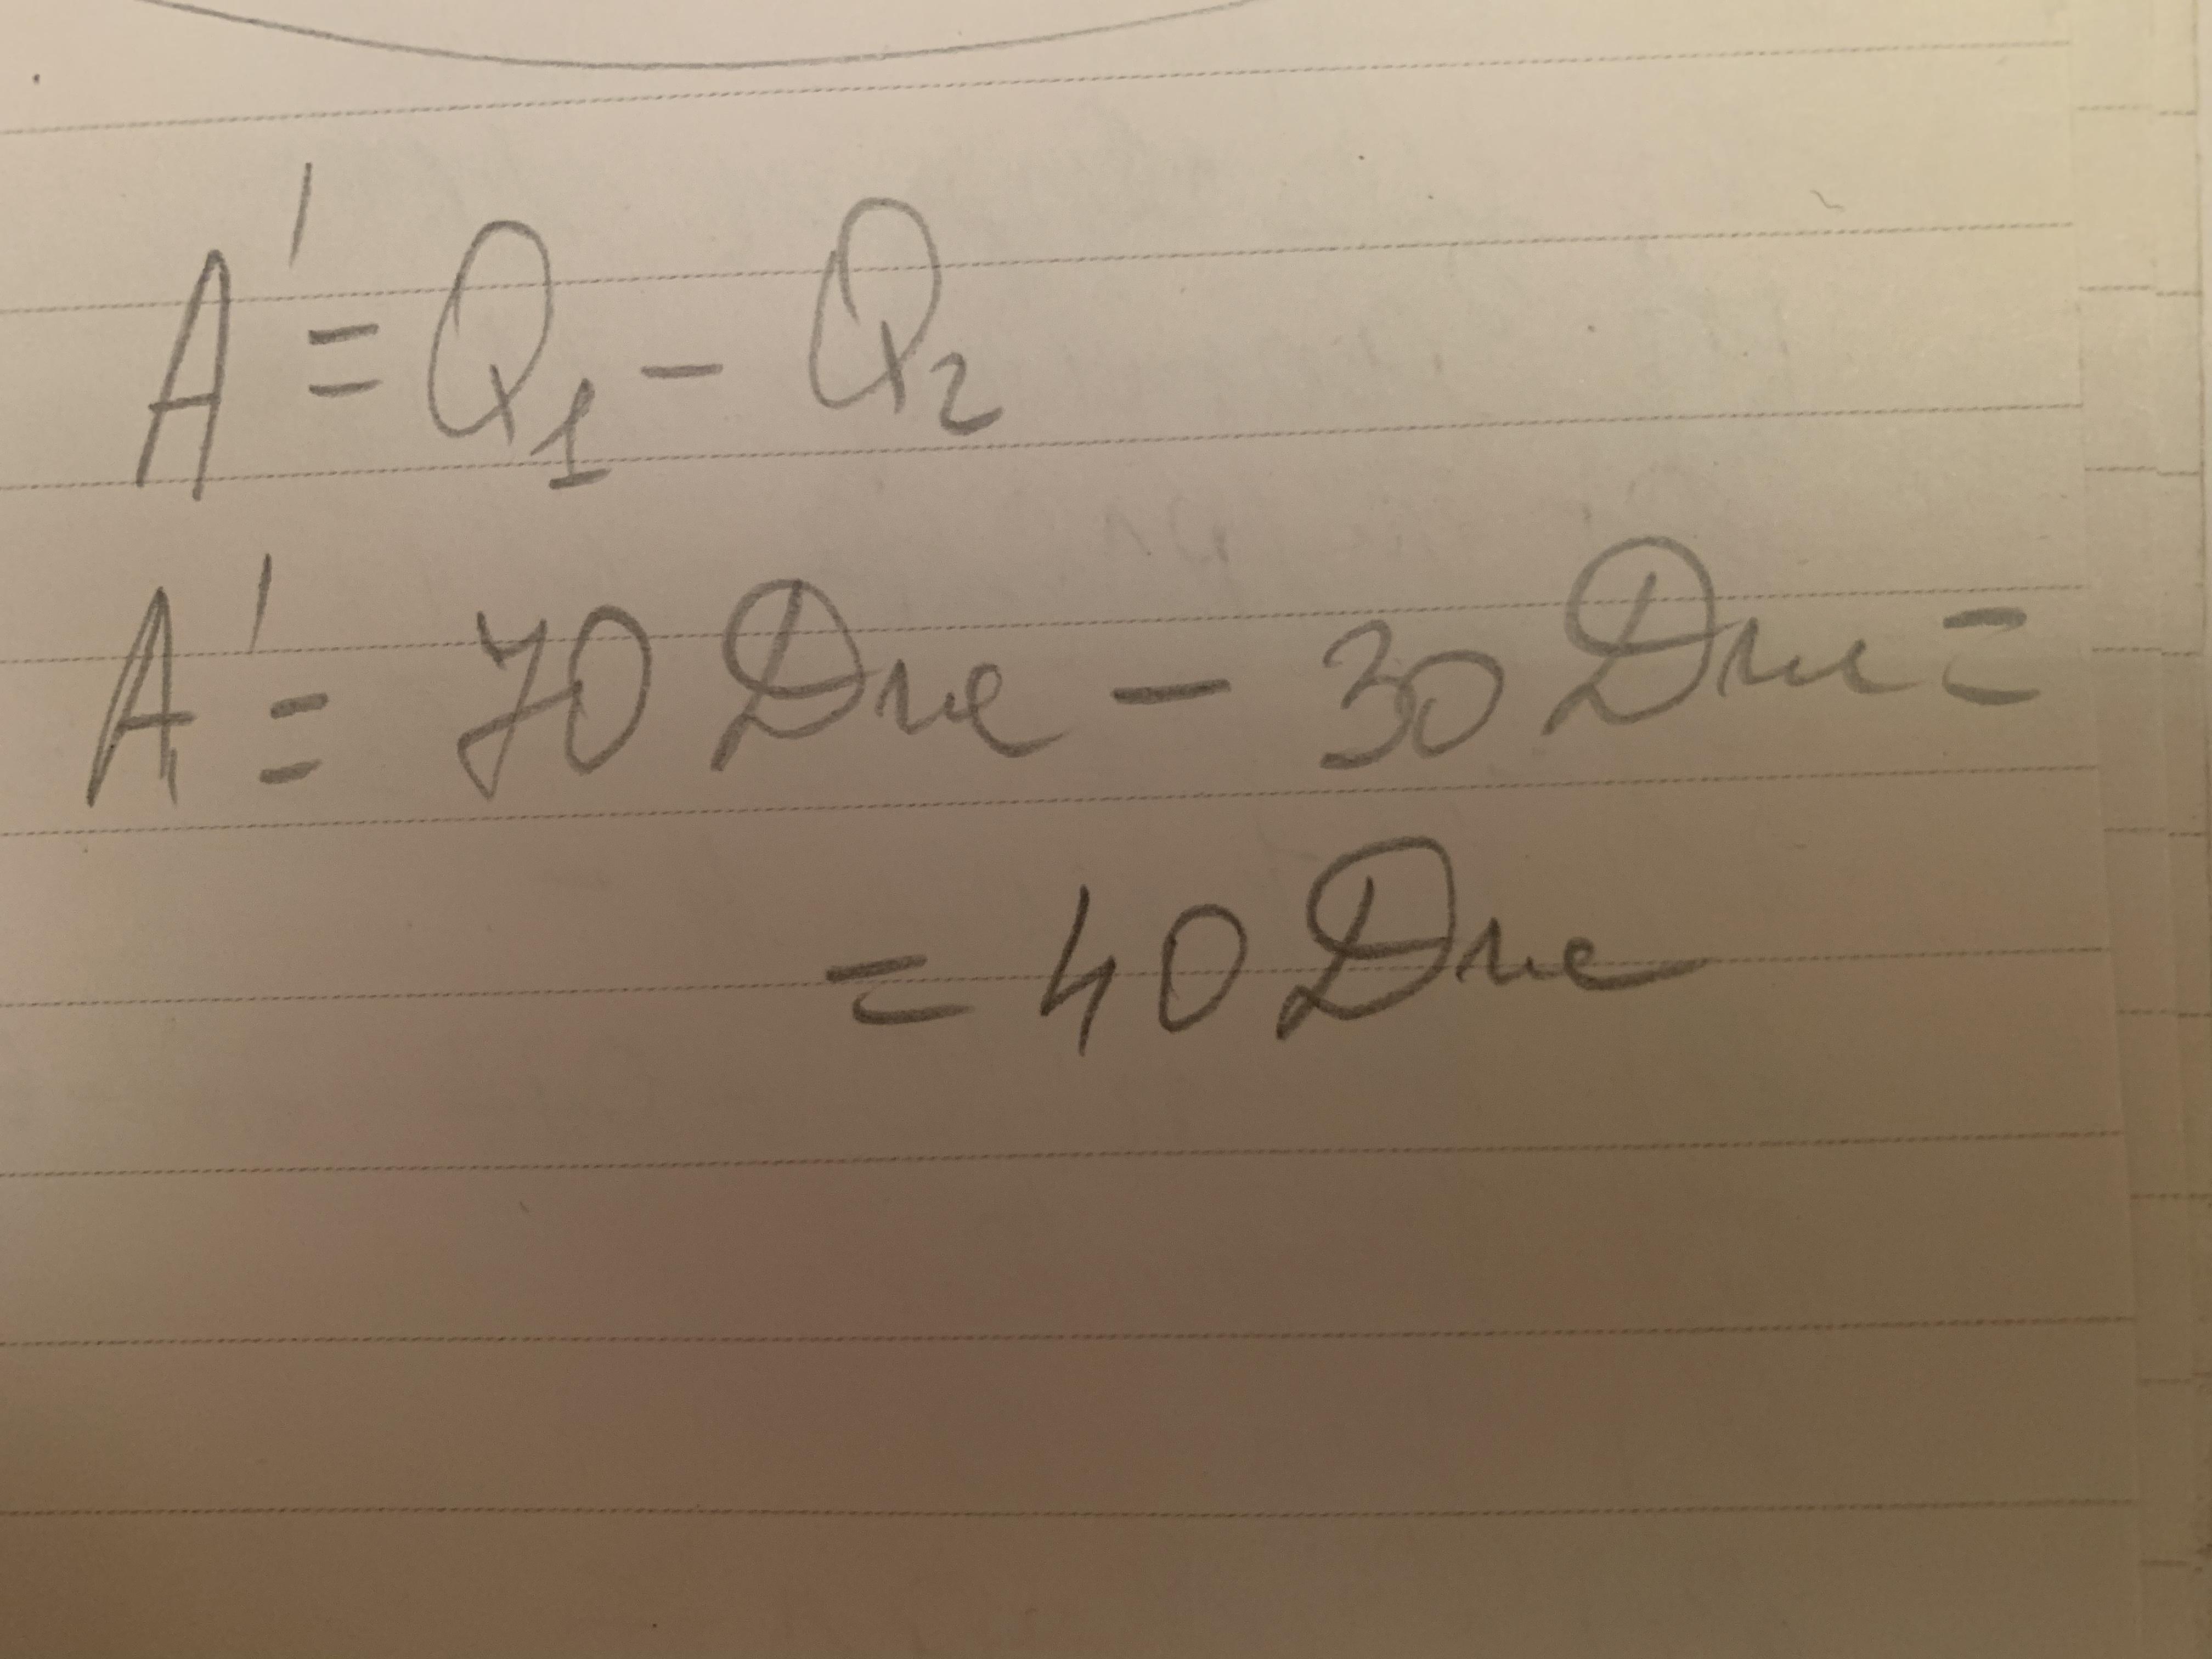 A' = Q₁ - Q₂
A' = 70 Дж - 30 Дж =
= 40 Дж